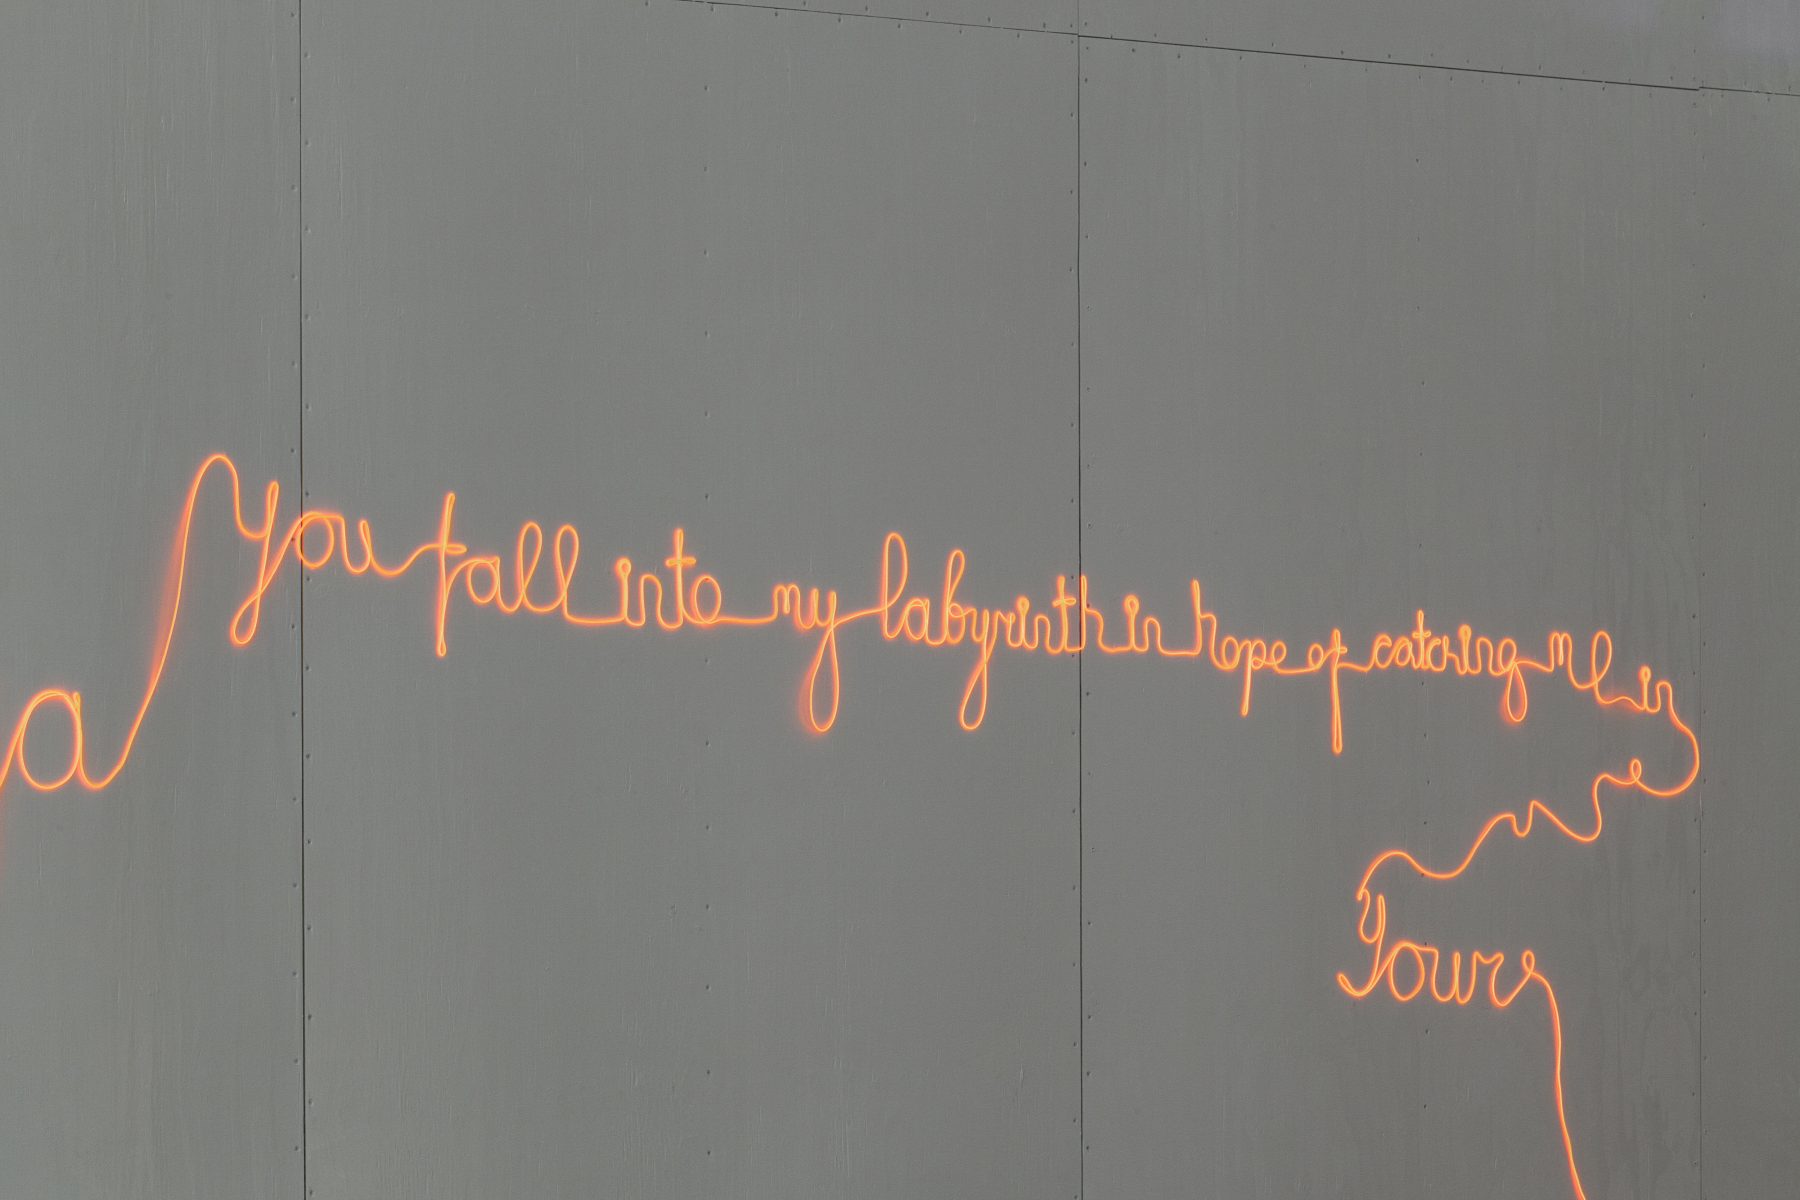 a you fall into my labyrinth in hope of catching me in
Yours